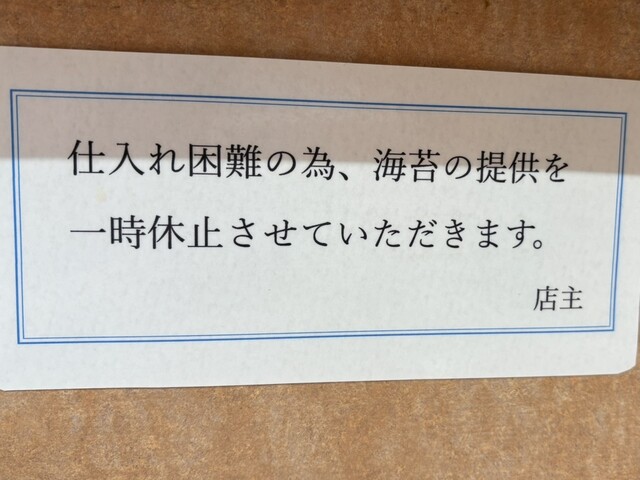 仕入れ困難の為、海苔の提供を
一時休止させていただきます。
店主